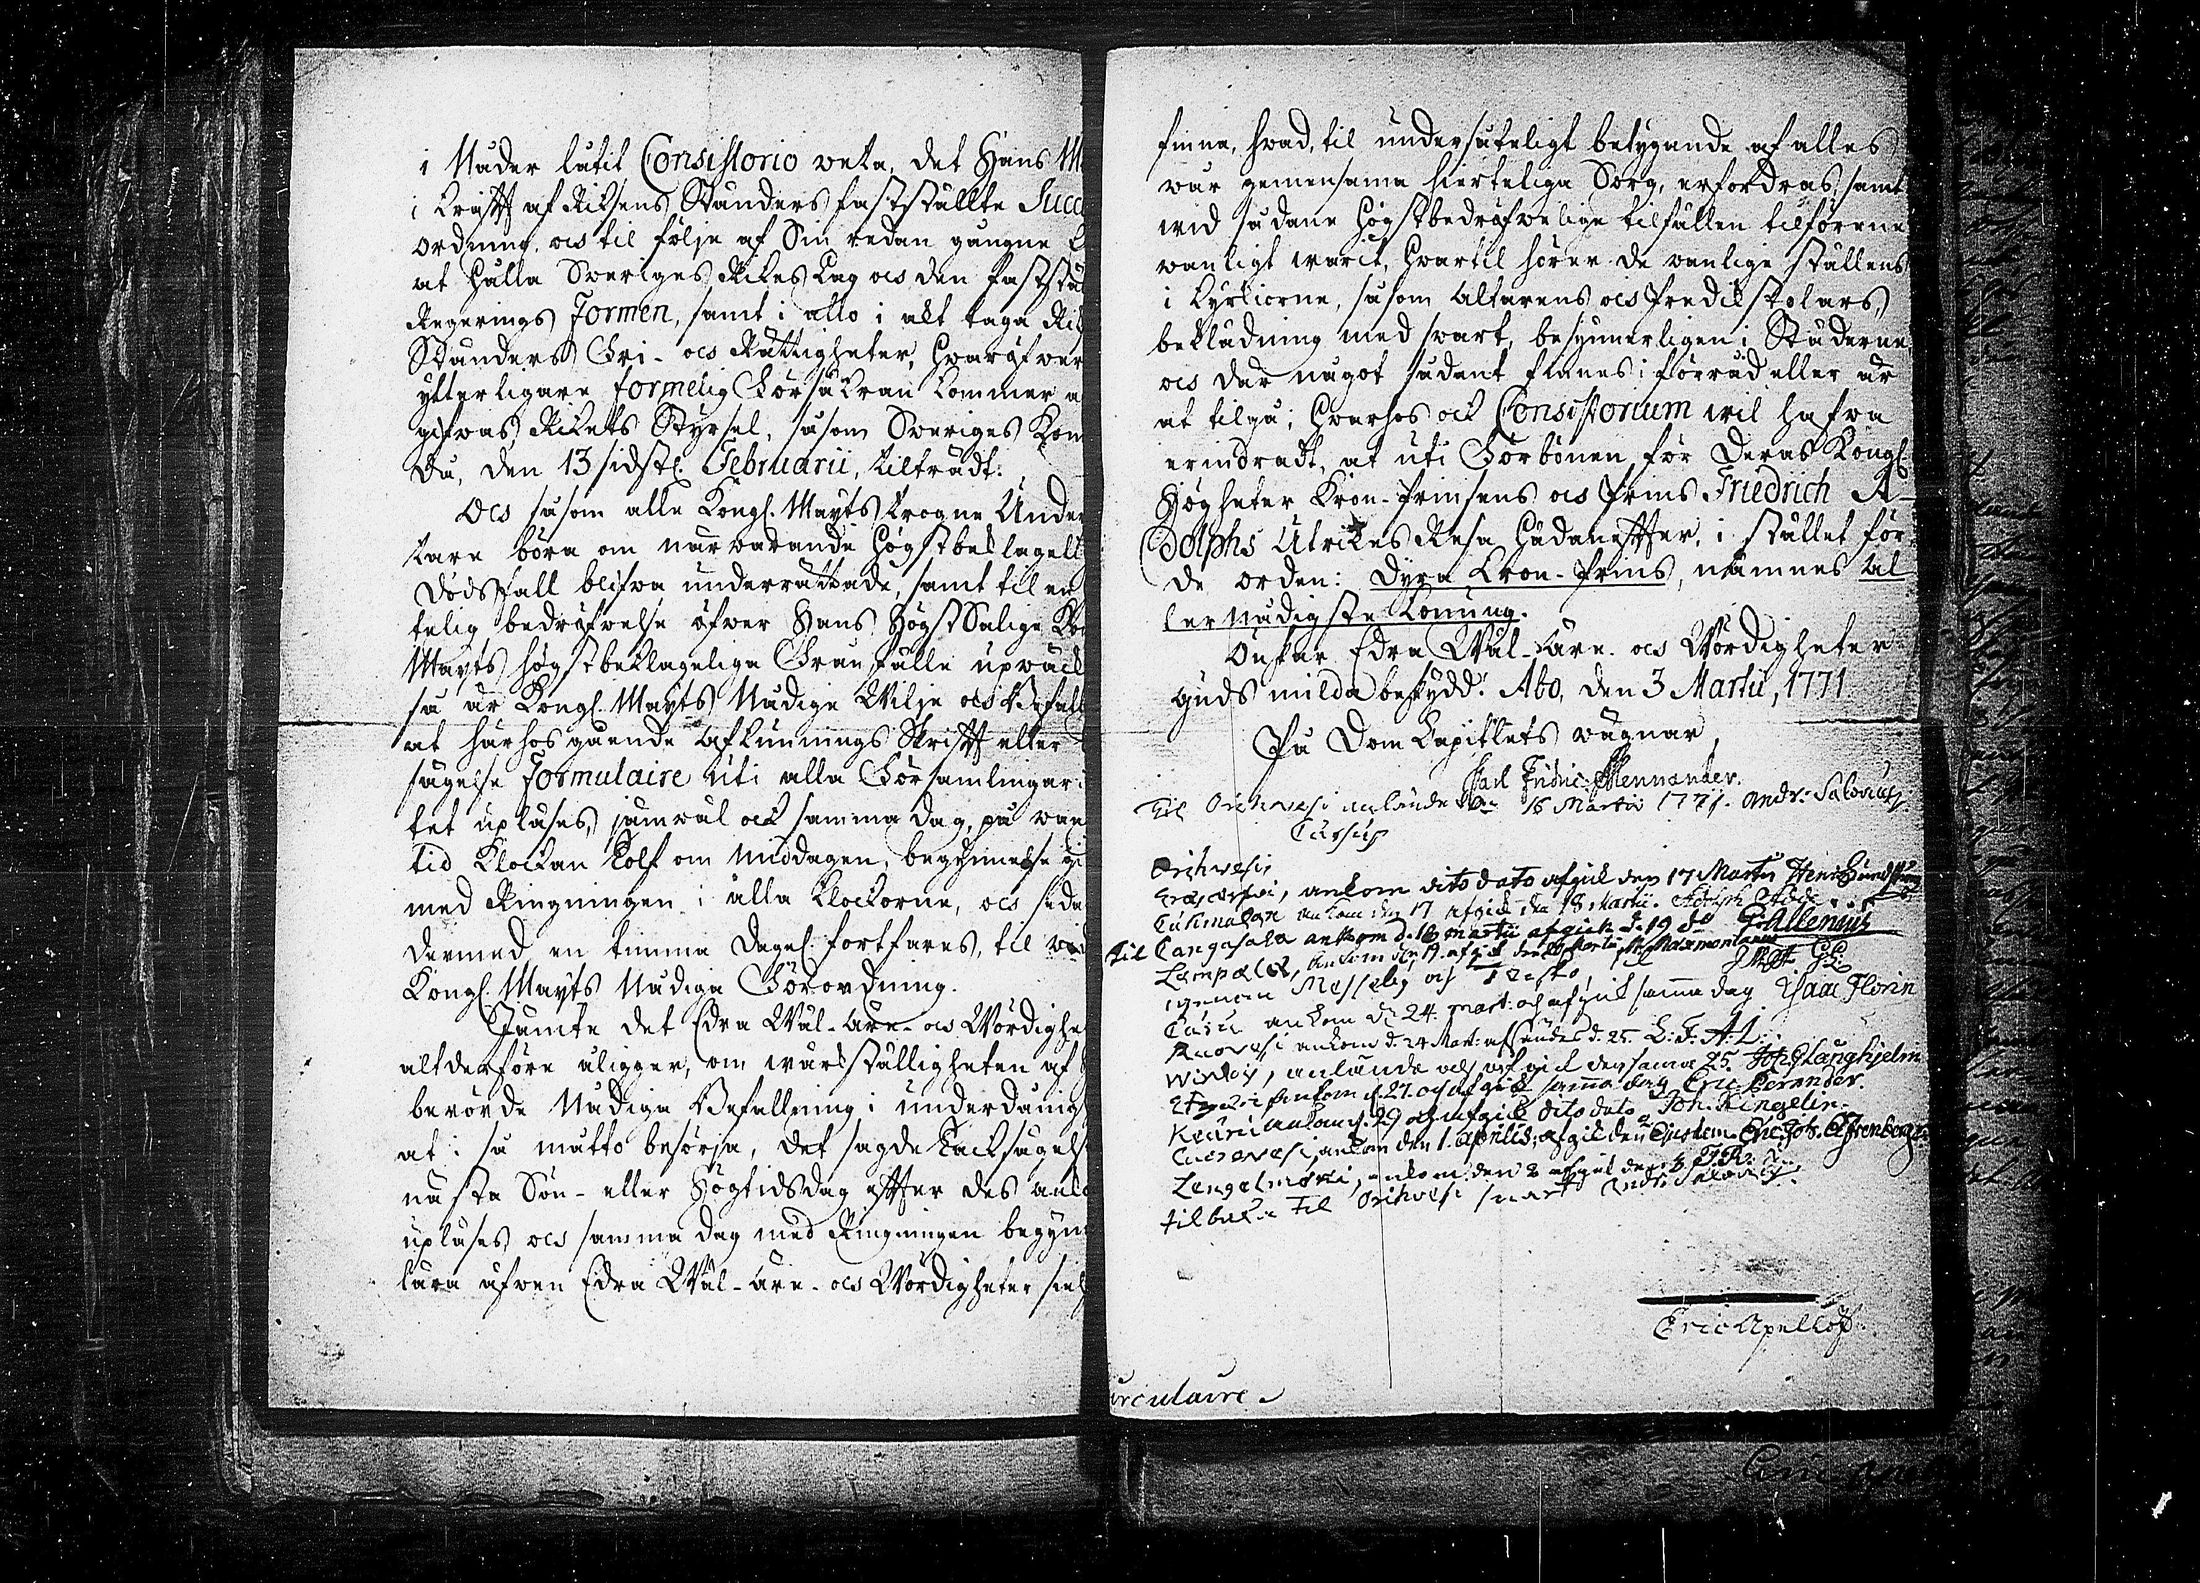 i Nåder låtit Consistorio weta, det Hans M
i krafft af Riksens Ständers fastställte Succ
ordning, och til följe af Sin redan gångne
at hålla Sweriges Rikes Lag och den faststä
Regerings Formen, samt i allo i akt taga Rik
Ständers Fri- och Rättigheter, hwaröfwer
ytterligare formelig Försäkran kommer a
gifwas, Rikets Styrsel, såsom Sweriges Kon
då, den 13 sidstl. Februarii, tilträdt.
Och såsom alle Kongl. Mayts trogne Under
tare böra om närwarande högstbeklageli
dödsfall blifwa underrättade, samt til en
telig bedröfwelse öfwer Hans HögstSalige Ko
Mayts högstbeklagelige Frånfälle upwäck
så är Kongl. Mayts Nådige Wilje och Befall
at härhos gående afkunnings Skrifft eller
sägelse Formulaire uti alla Församlingar i
tet upläses, jämwäl ock samma dag, på wan
tid Klockan tolf om middagen, begynnelse gi
med Ringningen i alla Klockorne, och seda
dermed en timma dagel. fortfares, til wid
Kongl. Mayts Nådiga Förordning.
Jämte det Edra Wäl-Äre- och Wördighe
altderföre åligger, om wärkställigheten af
berörde Nådiga Befallning i underdånig
at i så måtto besörja, det sagde tacksägels
nästa Sön- eller Högtidsdag efter des ank
upläses och samma dag med Ringningen begyn
lära äfwen Edra Wäl-Äre- och Wördigheter siel
finna, hwad, til undersåteligt betygande af alles
wår gemensama hierteliga Sorg, erfordras, samt
wid sådane högstbedröfwelige tilfällen tilförene
wanligt warit, hwartil hörer de wanlige ställens
i Kyrkiorne, såsom Altarens och Predikstolars,
beklädning med swart, besynnerligen i Städerne,
och där något sådant finnes i förråd eller är
at tilgå; hwarhos ock Consistorium wil hafwa
erindradt, at uti Förbönen för Deras Kongl.
Högheter Kron-Prinsens och Prins Friedrich A-
dolphs Utrikes Resa hädanefter, i stället för
de orden: dyra Kron-Prins, nämnes Al
lernådigste Konung.
Önskar Edra Wäl-Äre- och Wördigheter
Guds milda beskydd. Åbo, den 3 Martii, 1771
På Dom Kapitlets wägnar,
Carl Fridric Mennander.
Til Orihwesi anlände den 16 Martii 1771. Andr: Salovius
Cursus
Orihvesi,
ankom dito dato afgick den 17 Martii Henr:
Cuhmalax ankom den 17 afgick den 18 Martii. Adolph
til Cangasala ankom d. 18 martii afgick d. 19 do G: Allenius
Lempälä, ankom den 19. afgick den
igenom Messeby och
ankom d 24. mart. och afgick samma dag Isaac Florin
Ruovesi ankom d. 24 Mart: afsändes d. 25. L: F: A: L:
anlände och afgick den samma 25. Joh: G Langhjelm
ankom d. 27. och afgick samma dag Eric Berander.
Keuru ankom d. 29 och afgick dito dato Joh. Ringelin.
ankom den 1. Aprilis, afgick den
Lengelmäki, ankom den 2 afgick den 3 J. R.
tilbaka til Orihvesi Andr: Salovius.
Eric Apelhoff
irculaire